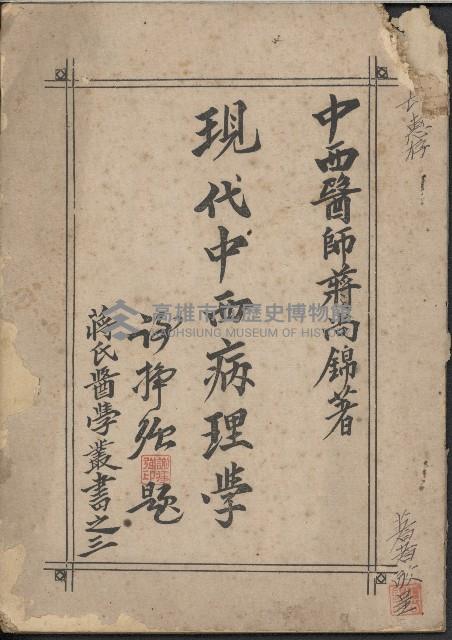 中西醫師蔣尚錦著
現代中西病理學
謝掙強題
謝掙強印
蔣氏醫學叢書之三
惠存
著者敬呈
高雄市立歷史博物館
KAOHSIUNG MUSEUM OF HISTORY